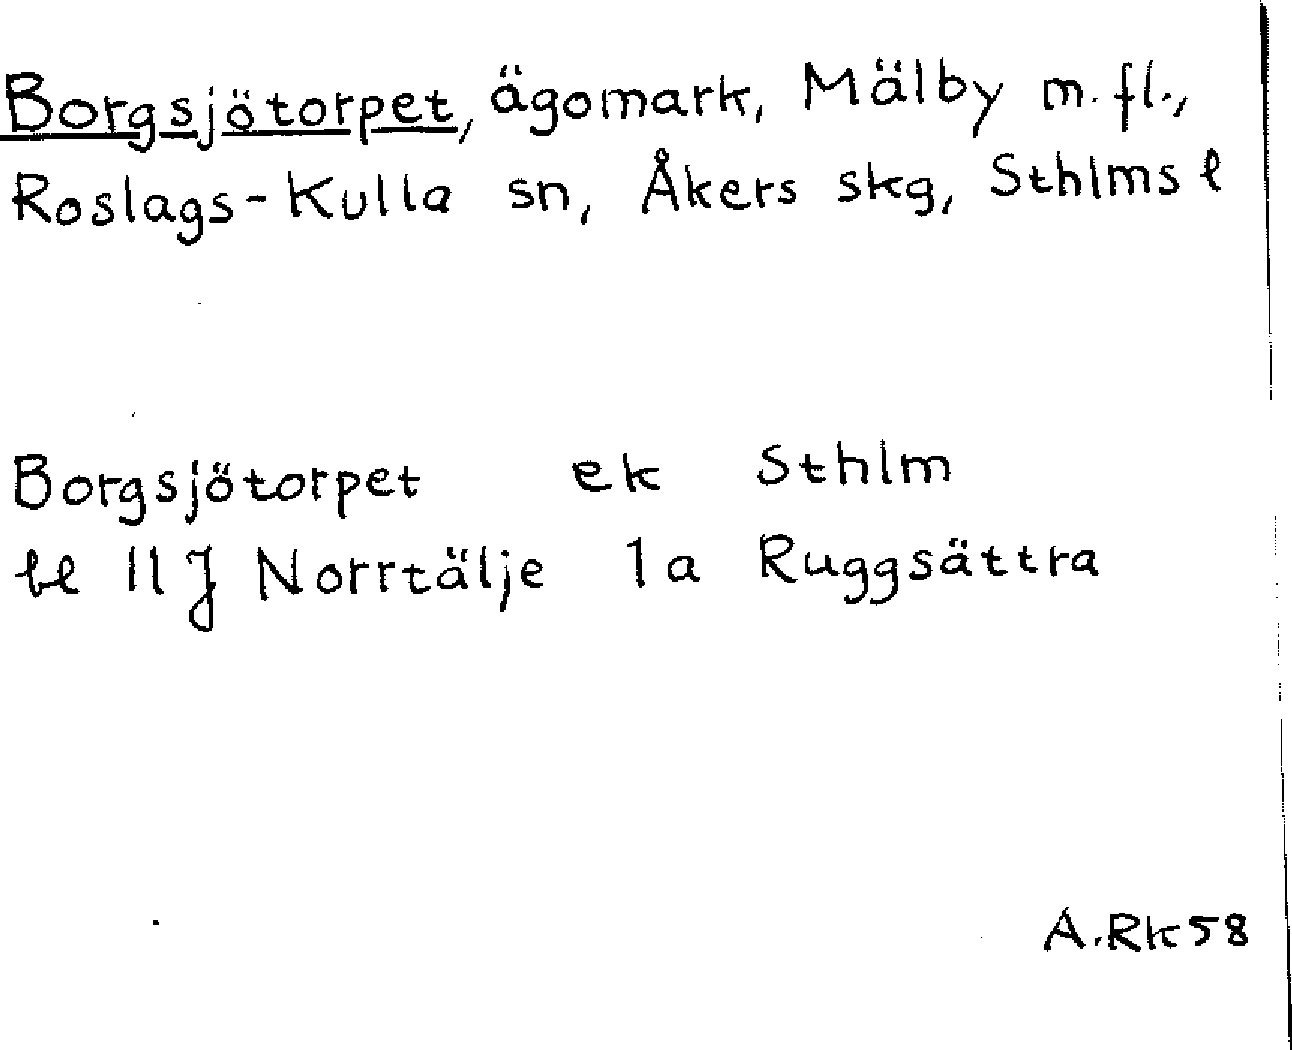 Borgsjötorpet, ägomark, Mälby m. fl.,
Roslags-Kulla sn, Åkers skg, Sthlms l
Borgsjötorpet ek Sthlm
bl 11 J Norrtälje 1a Ruggsättra
A.Rk 58